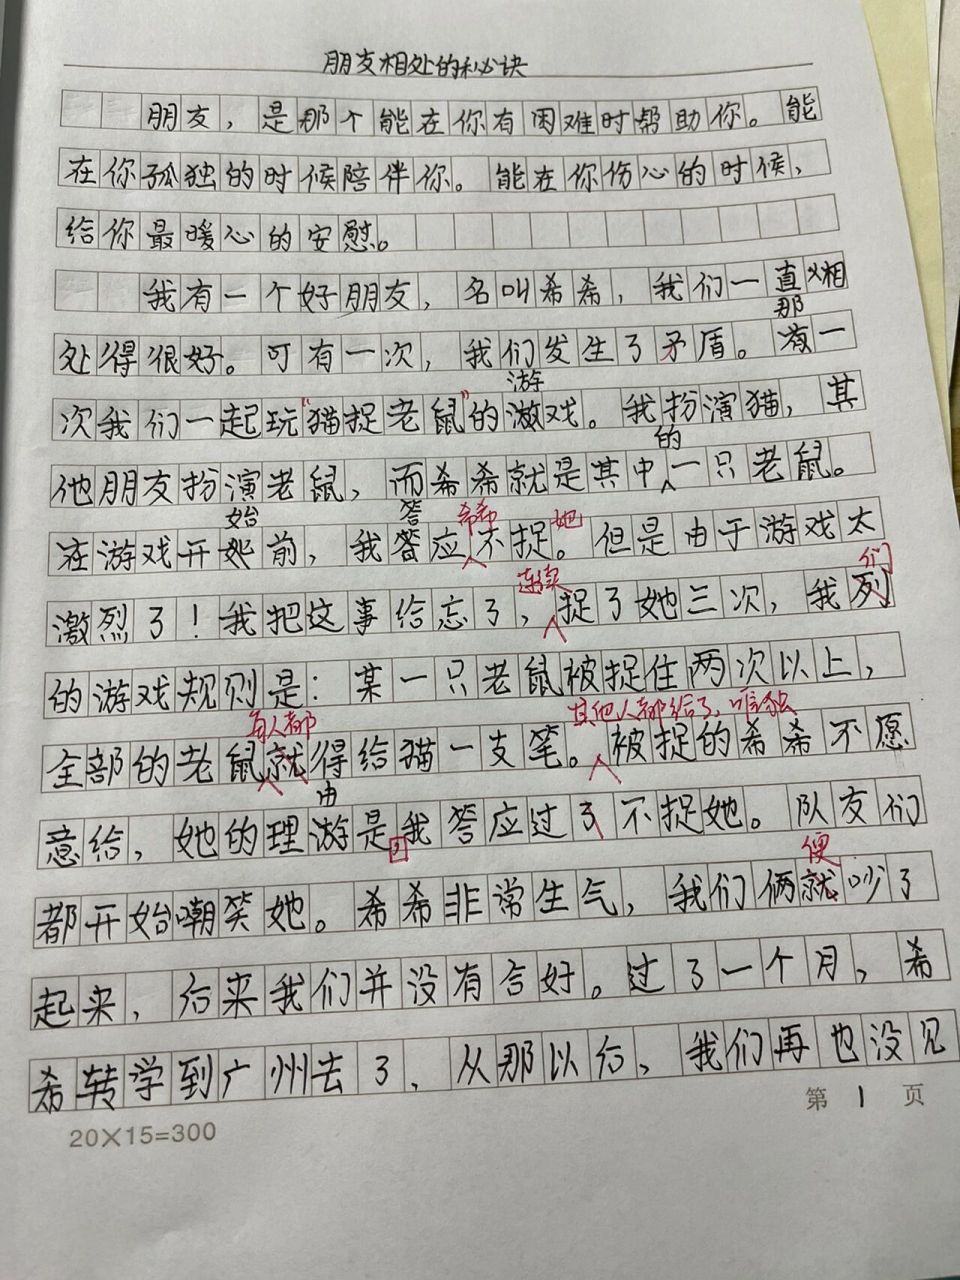 朋友相处的秘诀
朋友，是那个能在你有困难时帮助你。能
在你孤独的时候陪伴你。能在你伤心的时候，
给你最暖心的安慰。
我有一个好朋友，名叫希希，我们一直相
那
处得很好。可有一次，我们发生了矛盾。有一
游
次我们一起玩“猫捉老鼠”的游戏。我扮演猫，其
的
他朋友扮演老鼠，而希希就是其中一只老鼠。
始 答 希希 她
在游戏开始前，我答应不捉。但是由于游戏太
连续 们
激烈了！我把这事给忘了，捉了她三次，我列
的游戏规则是：某一只老鼠被捉住两次以上，
有人都 其他人都给了，唯独
全部的老鼠就得给猫一支笔。被捉的希希不愿
由
意给，她的理游是我答应过了不捉她。队友们
因 便
都开始嘲笑她。希希非常生气，我们俩就吵了
起来，后来我们并没有合好。过了一个月，希
希转学到广州去了，从那以后，我们再也没见
第 1 页
20×15=300